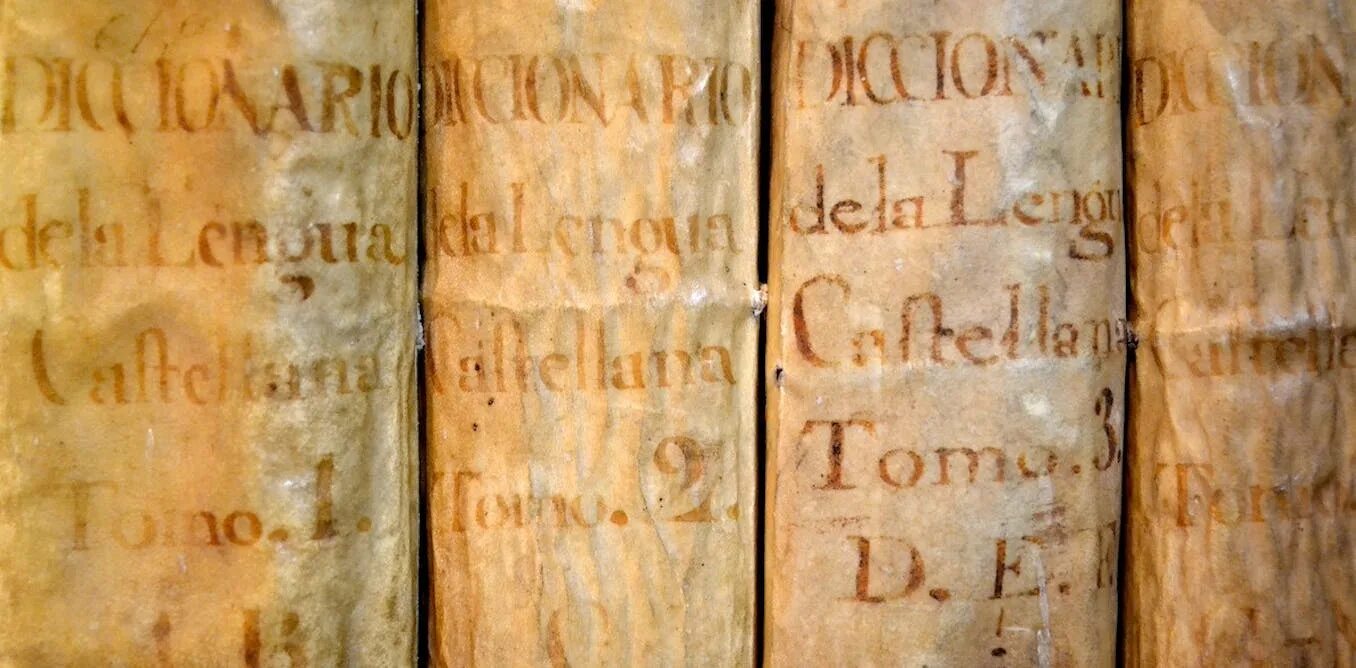 DICCIONARIO
de la Lengua
Caſtellana
Tomo. 1.
DICCIONARIO
de la Lengua
Caſtellana
Tomo. 2.
C
DICCIONARI
de la Lengu
Caſtellana
Tomo. 3.
D. E. F
DICCION
de la Len
Caſtella
Tomo